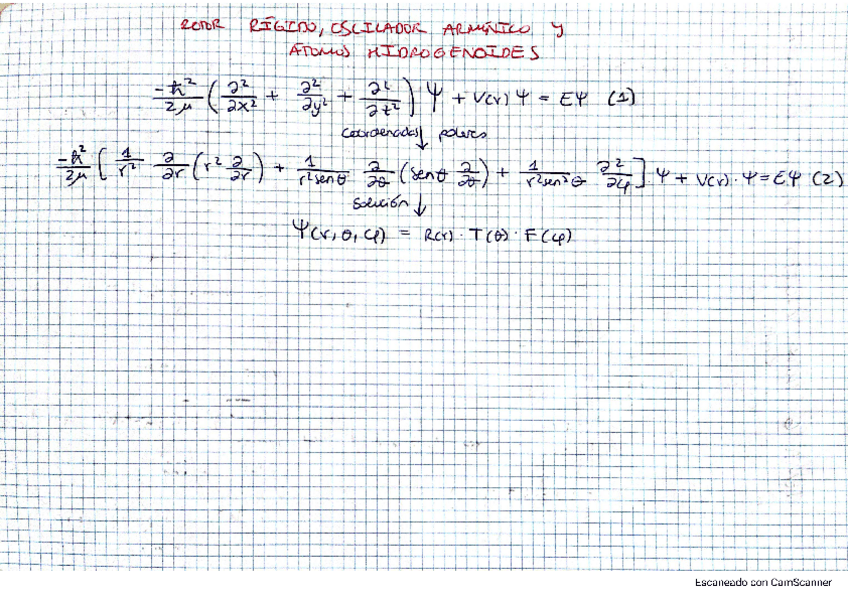 ROTOR RÍGIDO, OSCILADOR ARMÓNICO Y
ÁTOMOS HIDROGENOIDES
-ħ²/2μ (∂²/∂x² + ∂²/∂y² + ∂²/∂z²) Ψ + V(r) Ψ = EΨ (1)
coordenadas ↓ polares
-ħ²/2μ [ 1/r² ∂/∂r (r² ∂/∂r) + 1/r²senθ ∂/∂θ (senθ ∂/∂θ) + 1/r²sen²θ ∂²/∂φ ] Ψ + V(r) · Ψ = EΨ (2)
solución ↓
Ψ(r, θ, φ) = R(r) · T(θ) · F(φ)
Escaneado con CamScanner